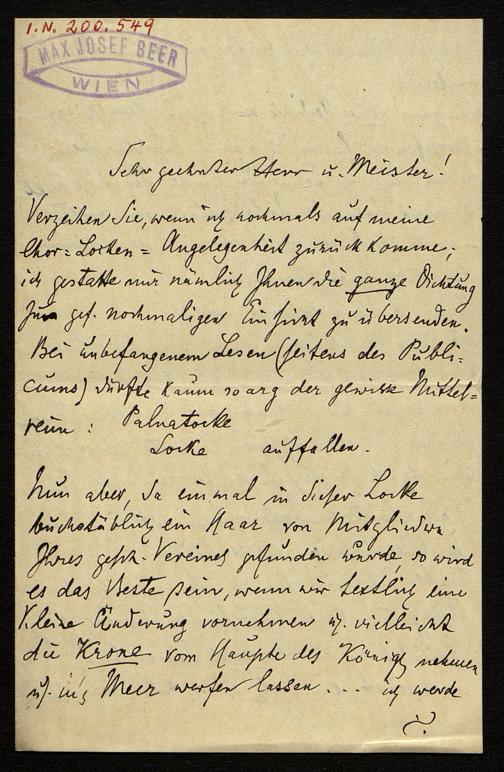 I.N. 200.549
MAX JOSEF BEER
WIEN
Sehr geehrter Herr u. Meister!
Verzeihen Sie, wenn ich nochmals auf meine
Chor=Locken=Angelegenheit zurück komme;
ich gestatte mir nämlich Ihnen die ganze Dichtung
zur gef. nochmaligen Einsicht zu übersenden.
Bei unbefangenem Lesen (seitens des Publi=
cums) dürfte kaum so arg der gewisse Mittel=
reim: Palnatocke
Locke auffallen.
Nun aber, da einmal in dieser Locke
buchstäblich ein Haar von Mitgliedern
Ihres gesch. Vereines gefunden wurde, so wird
es das Beste sein, wenn wir textlich eine
kleine Änderung vornehmen u. vielleicht
die Krone vom Haupte des Königs nehmen
u. in's Meer werfen lassen... ich werde